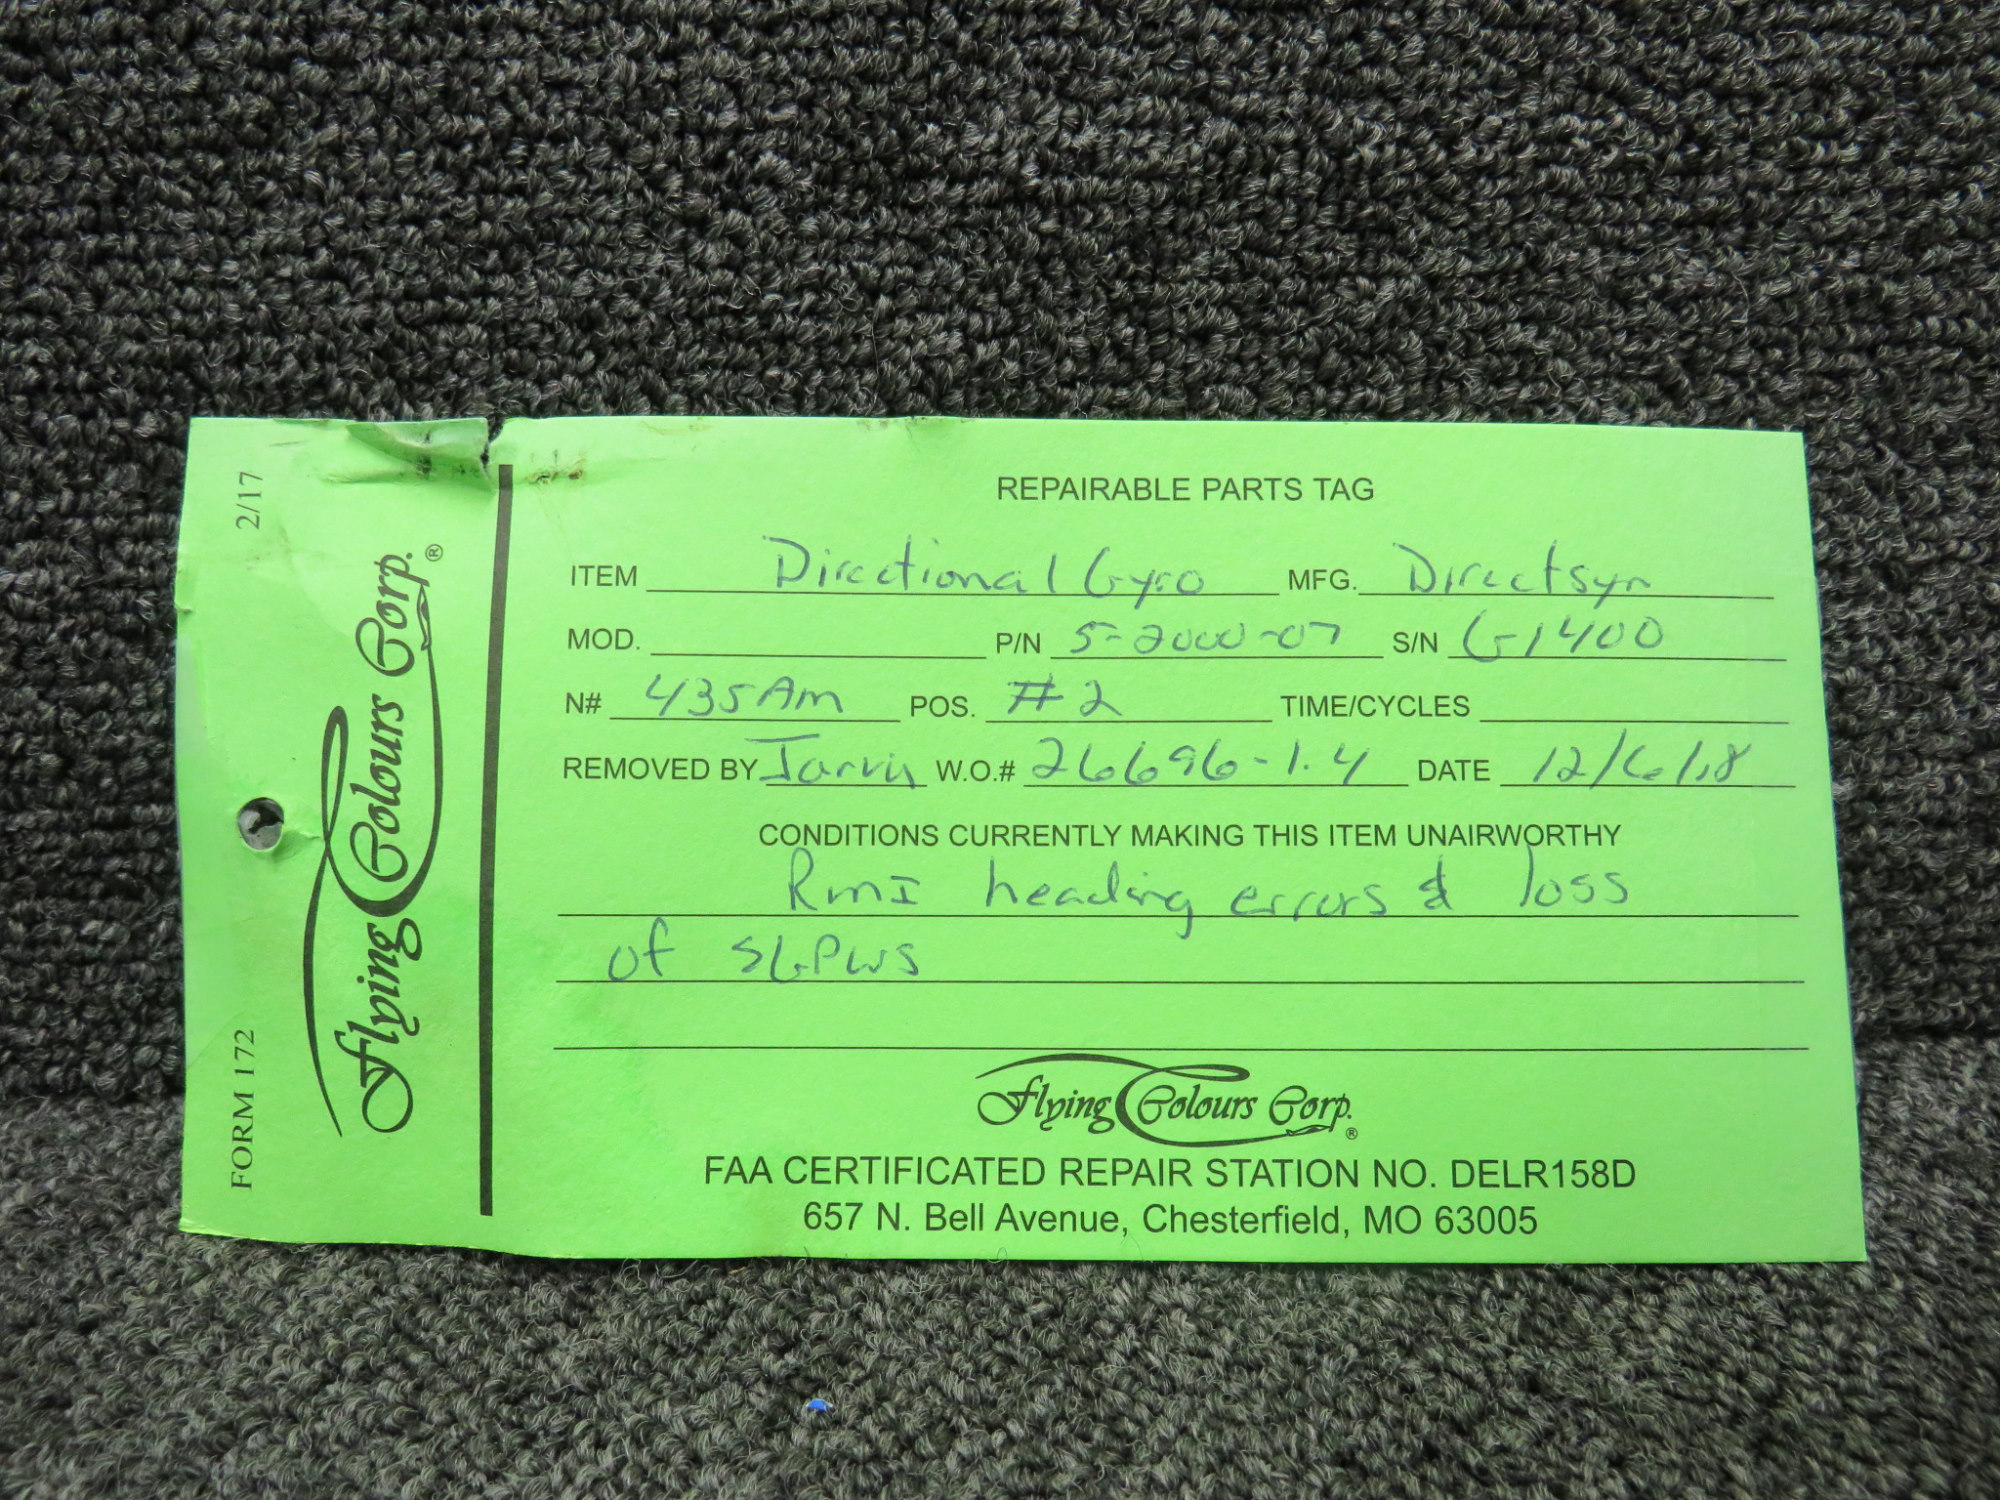 2/17
FORM 172
Flying Colours Corp.®
REPAIRABLE PARTS TAG
ITEM Directional Gyro MFG. Directsyn
MOD. P/N 5-2000-07 S/N G1400
N# 435Am POS. #2 TIME/CYCLES
REMOVED BY Jarvis W.O.# 26696-1.4 DATE 12/6/18
CONDITIONS CURRENTLY MAKING THIS ITEM UNAIRWORTHY
RmI heading errors & loss
of SGPWS
Flying Colours Corp.®
FAA CERTIFICATED REPAIR STATION NO. DELR158D
657 N. Bell Avenue, Chesterfield, MO 63005